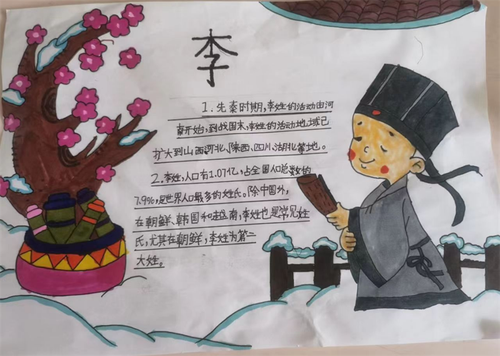 李
1. 先秦时期，李姓的活动由河
南开始，到战国末，李姓的活动地域已
扩大到山西河北、陕西、四川、湖北等地。
2. 李姓，人口有1.07亿，占全国人口总数的
7.9%，是世界人口最多的姓氏。除中国外，
在朝鲜、韩国和越南，李姓也是常见姓
氏，尤其在朝鲜，李姓为第二
大姓。